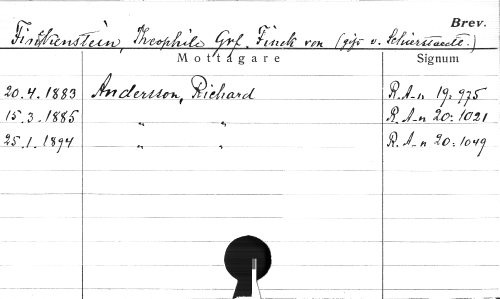 Brev.
Finkenstein, Theophile Grf. Finck von (gift v. Schierstaedt.)
Mottagare Signum
20.4.1883 Andersson, Richard R. A-n 19:975
15.3.1885 " " R. A-n 20:1021
25.1.1894 " " R. A-n 20:1049